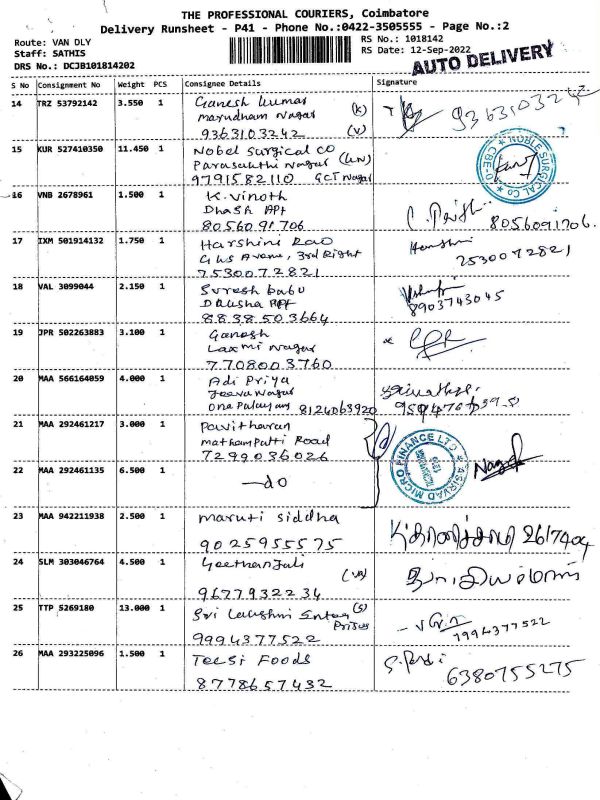 THE PROFESSIONAL COURIERS, Coimbatore
Delivery Runsheet - P41 - Phone No.:0422-3505555 - Page No.:2
Route: VAN DLY
RS No.: 1018142
Staff: SATHIS
RS Date: 12-Sep-2022
DRS No.: DCJB101814202
AUTO DELIVERY
S No Consignment No Weight PCS Consignee Details Signature
14 TRZ 53792142 3.550 1 Ganesh kumar
marudham Nagar (K)
9363103242 (V)
15 KUR 527410350 11.450 1 Nobel Surgical CO
Parasakthi Nagar
9791582110 GCT Nagar
NOBLE SURGICAL CO
16 VNB 2678961 1.500 1 K. Vinoth
Dhash APt
8056091706 8056091706.
17 IXM 501914132 1.750 1 Harshini Rao
Avenue, 3rd Right
7530072821
18 VAL 3099044 2.150 1 Suresh babu
APt 8903743045
8838503664
19 JPR 502263883 3.100 1 Ganesh
Laxmi Nagar
7708003760
20 MAA 566164059 4.000 1 Adi Priya
Jeeva Nagar
8124063920
21 MAA 292461217 3.000 1 Pavitharan
mathampatti Road
7299036026
ASIRVAD MICRO FINANCE LTD
22 MAA 292461135 6.500 1 —do
23 MAA 942211938 2.500 1 maruti siddha
9025955575 2617404
24 SLM 303046764 4.500 1 Geethanjali
9677932234
25 TTP 5269180 13.000 1 Sri Lakshmi Enter (S)
Prises
9994377522 7994377522
26 MAA 293225096 1.500 1 Foods
8778657432 6380755275